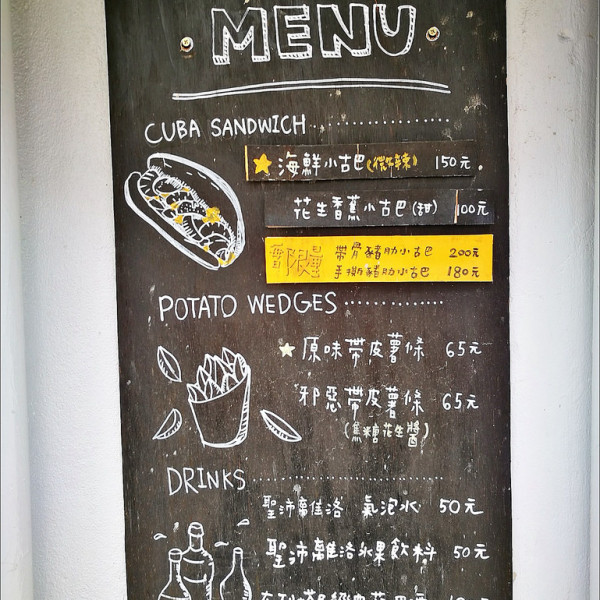 MENU
CUBA SANDWICH
海鮮小古巴(微辣) 150元
花生香蕉小古巴(甜) 100元
每日限量 帶骨豬肋小古巴 200元
手撕豬肋小古巴 180元
POTATO WEDGES
原味帶皮薯條 65元
邪惡帶皮薯條 65元
(焦糖花生醬)
DRINKS
聖沛離洛 氣泡水 50元
聖沛離洛水果飲料 50元